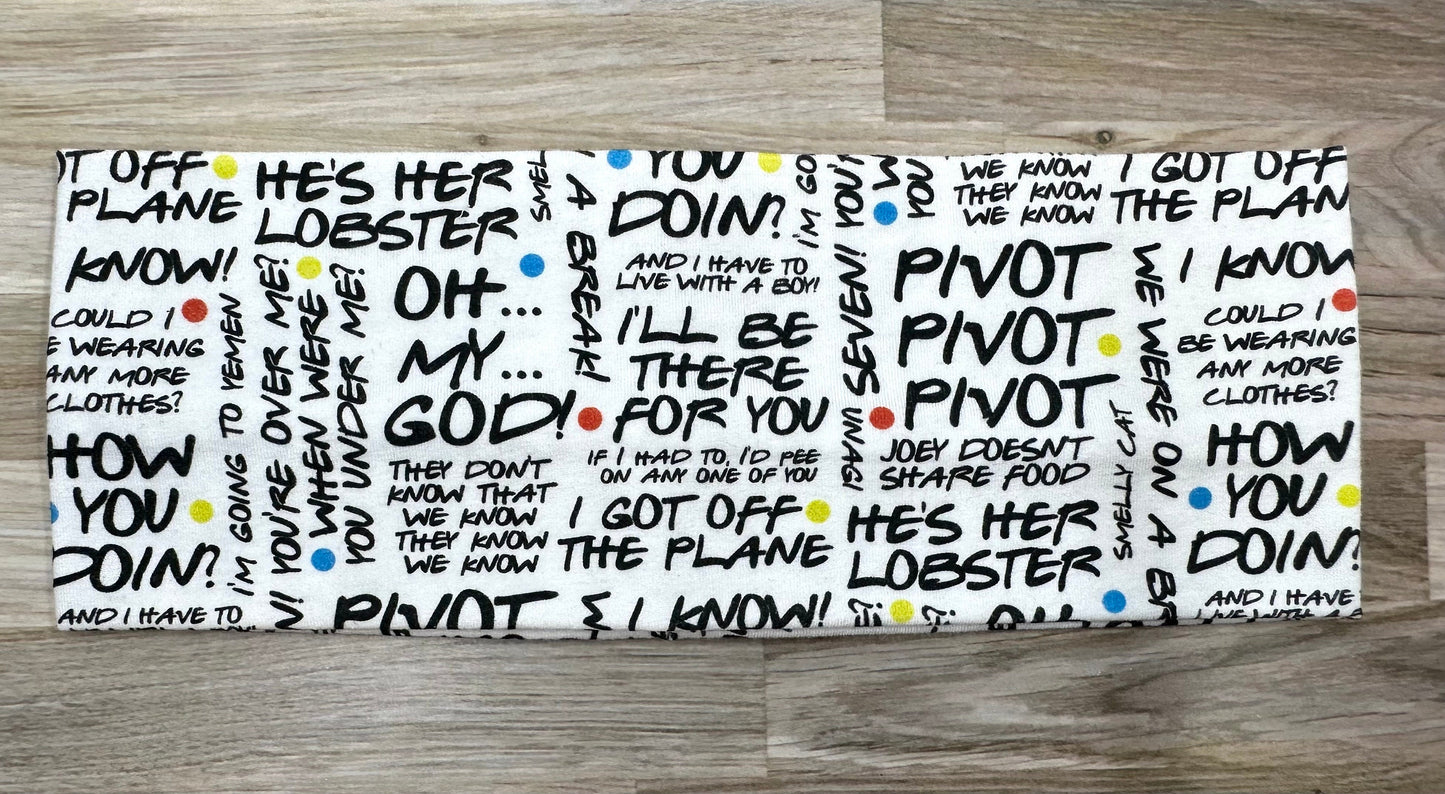 OT OFF
PLANE
KNOW!
COULD I
E WEARING
ANY MORE
CLOTHES?
HOW
YOU
DOIN?
AND I HAVE TO
I'M GOING TO YEMEN
HE'S HER
LOBSTER
YOU'RE OVER ME?
WHEN WERE
YOU UNDER ME?
OH...
MY...
GOD!
THEY DON'T
KNOW THAT
WE KNOW
THEY KNOW
WE KNOW
PIVOT
SMEL
A BREAK!
YOU
DOIN?
AND I HAVE TO
LIVE WITH A BOY!
I'LL BE
THERE
FOR YOU
IF I HAD TO, I'D PEE
ON ANY ONE OF YOU
I GOT OFF
THE PLANE
I KNOW!
I'M GO
SEVEN!
UNAGI
YOU'
W
YOU
WE KNOW
THEY KNOW
WE KNOW
PIVOT
PIVOT
PIVOT
JOEY DOESN'T
SHARE FOOD
HE'S HER
LOBSTER
OH
SMELLY CAT
WE WERE ON A BR
I GOT OFF
THE PLAN
I KNOW
COULD I
BE WEARING
ANY MORE
CLOTHES?
HOW
YOU
DOIN?
AND I HAVE
LIVE WITH A